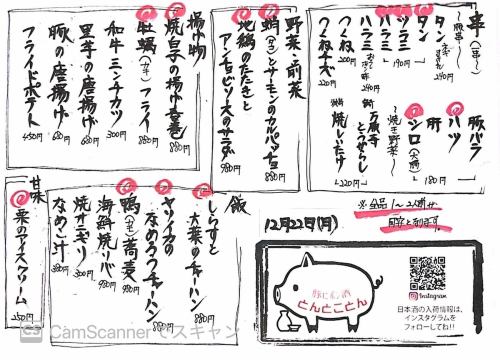 串
～豚串～
タン
240円
タン
ハツ
190円
ハラミ
240円
ハラミ
つくね
200円
つくねチーズ
220円
豚バラ
ハツ
180円
肝
シロ
～焼き野菜～
万願寺とうがらし
焼しいたけ
220円
野菜・前菜
蛸(タコ)とサーモンのカルパッチョ
880円
地鶏のたたきと
アンチョビソースのサラダ
980円
揚げ物
焼茄子の揚げ春巻
880円
牡蠣(カキ)フライ
880円
和牛ミンチカツ
300円
里芋の唐揚げ
680円
豚の唐揚げ
680円
フライドポテト
450円
※全品1～2人前サ
12月22日(月)
豚に和酒
とんとことん
Instagram
日本酒の入荷情報は、
インスタグラムを
フォローしてね!!
飯
しらすと
大葉のチャーハン
880円
ヤリイカの
なめたけチャーハン
880円
鴨蕎麦
980円
海鮮焼ソバ
980円
焼オニギリ
300円
なめこ汁
380円
甘味
栗のアイスクリーム
250円
CS CamScanner でスキャン